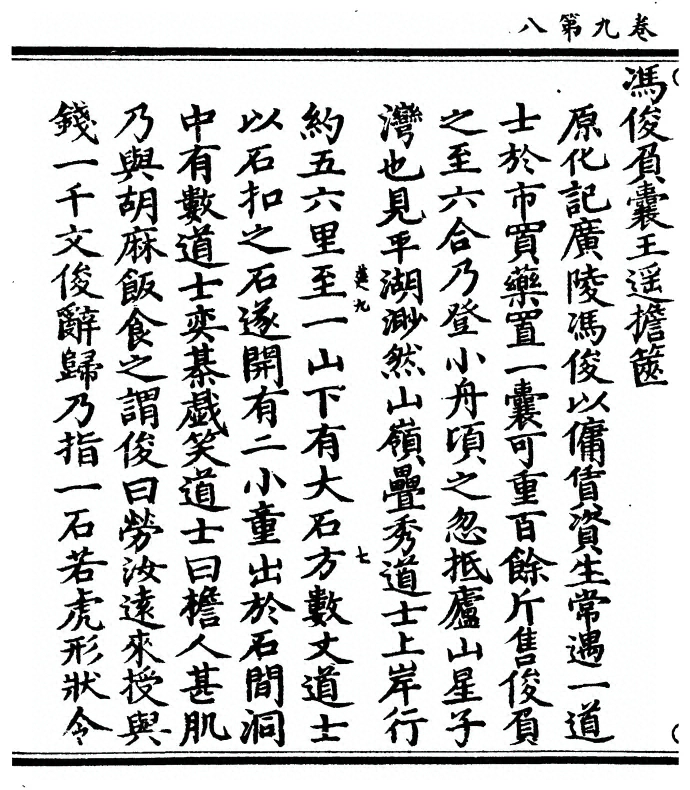 卷九第八
馮俊負囊王遥擔篋
原化記廣陵馮俊以傭賃資生常遇一道
士於市買藥置一囊可重百餘斤售俊負
之至六合乃登小舟頃之忽抵廬山星子
灣也見平湖渺然山嶺疊秀道士上岸行
約五六里至一山下有大石方數丈道士
以石扣之石遂開有二小童出於石間洞
中有數道士奕棊戯笑道士曰檐人甚肌
乃與胡麻飯食之謂俊曰勞汝遠來授與
錢一千文俊辭歸乃指一石若虎形狀令
九
七